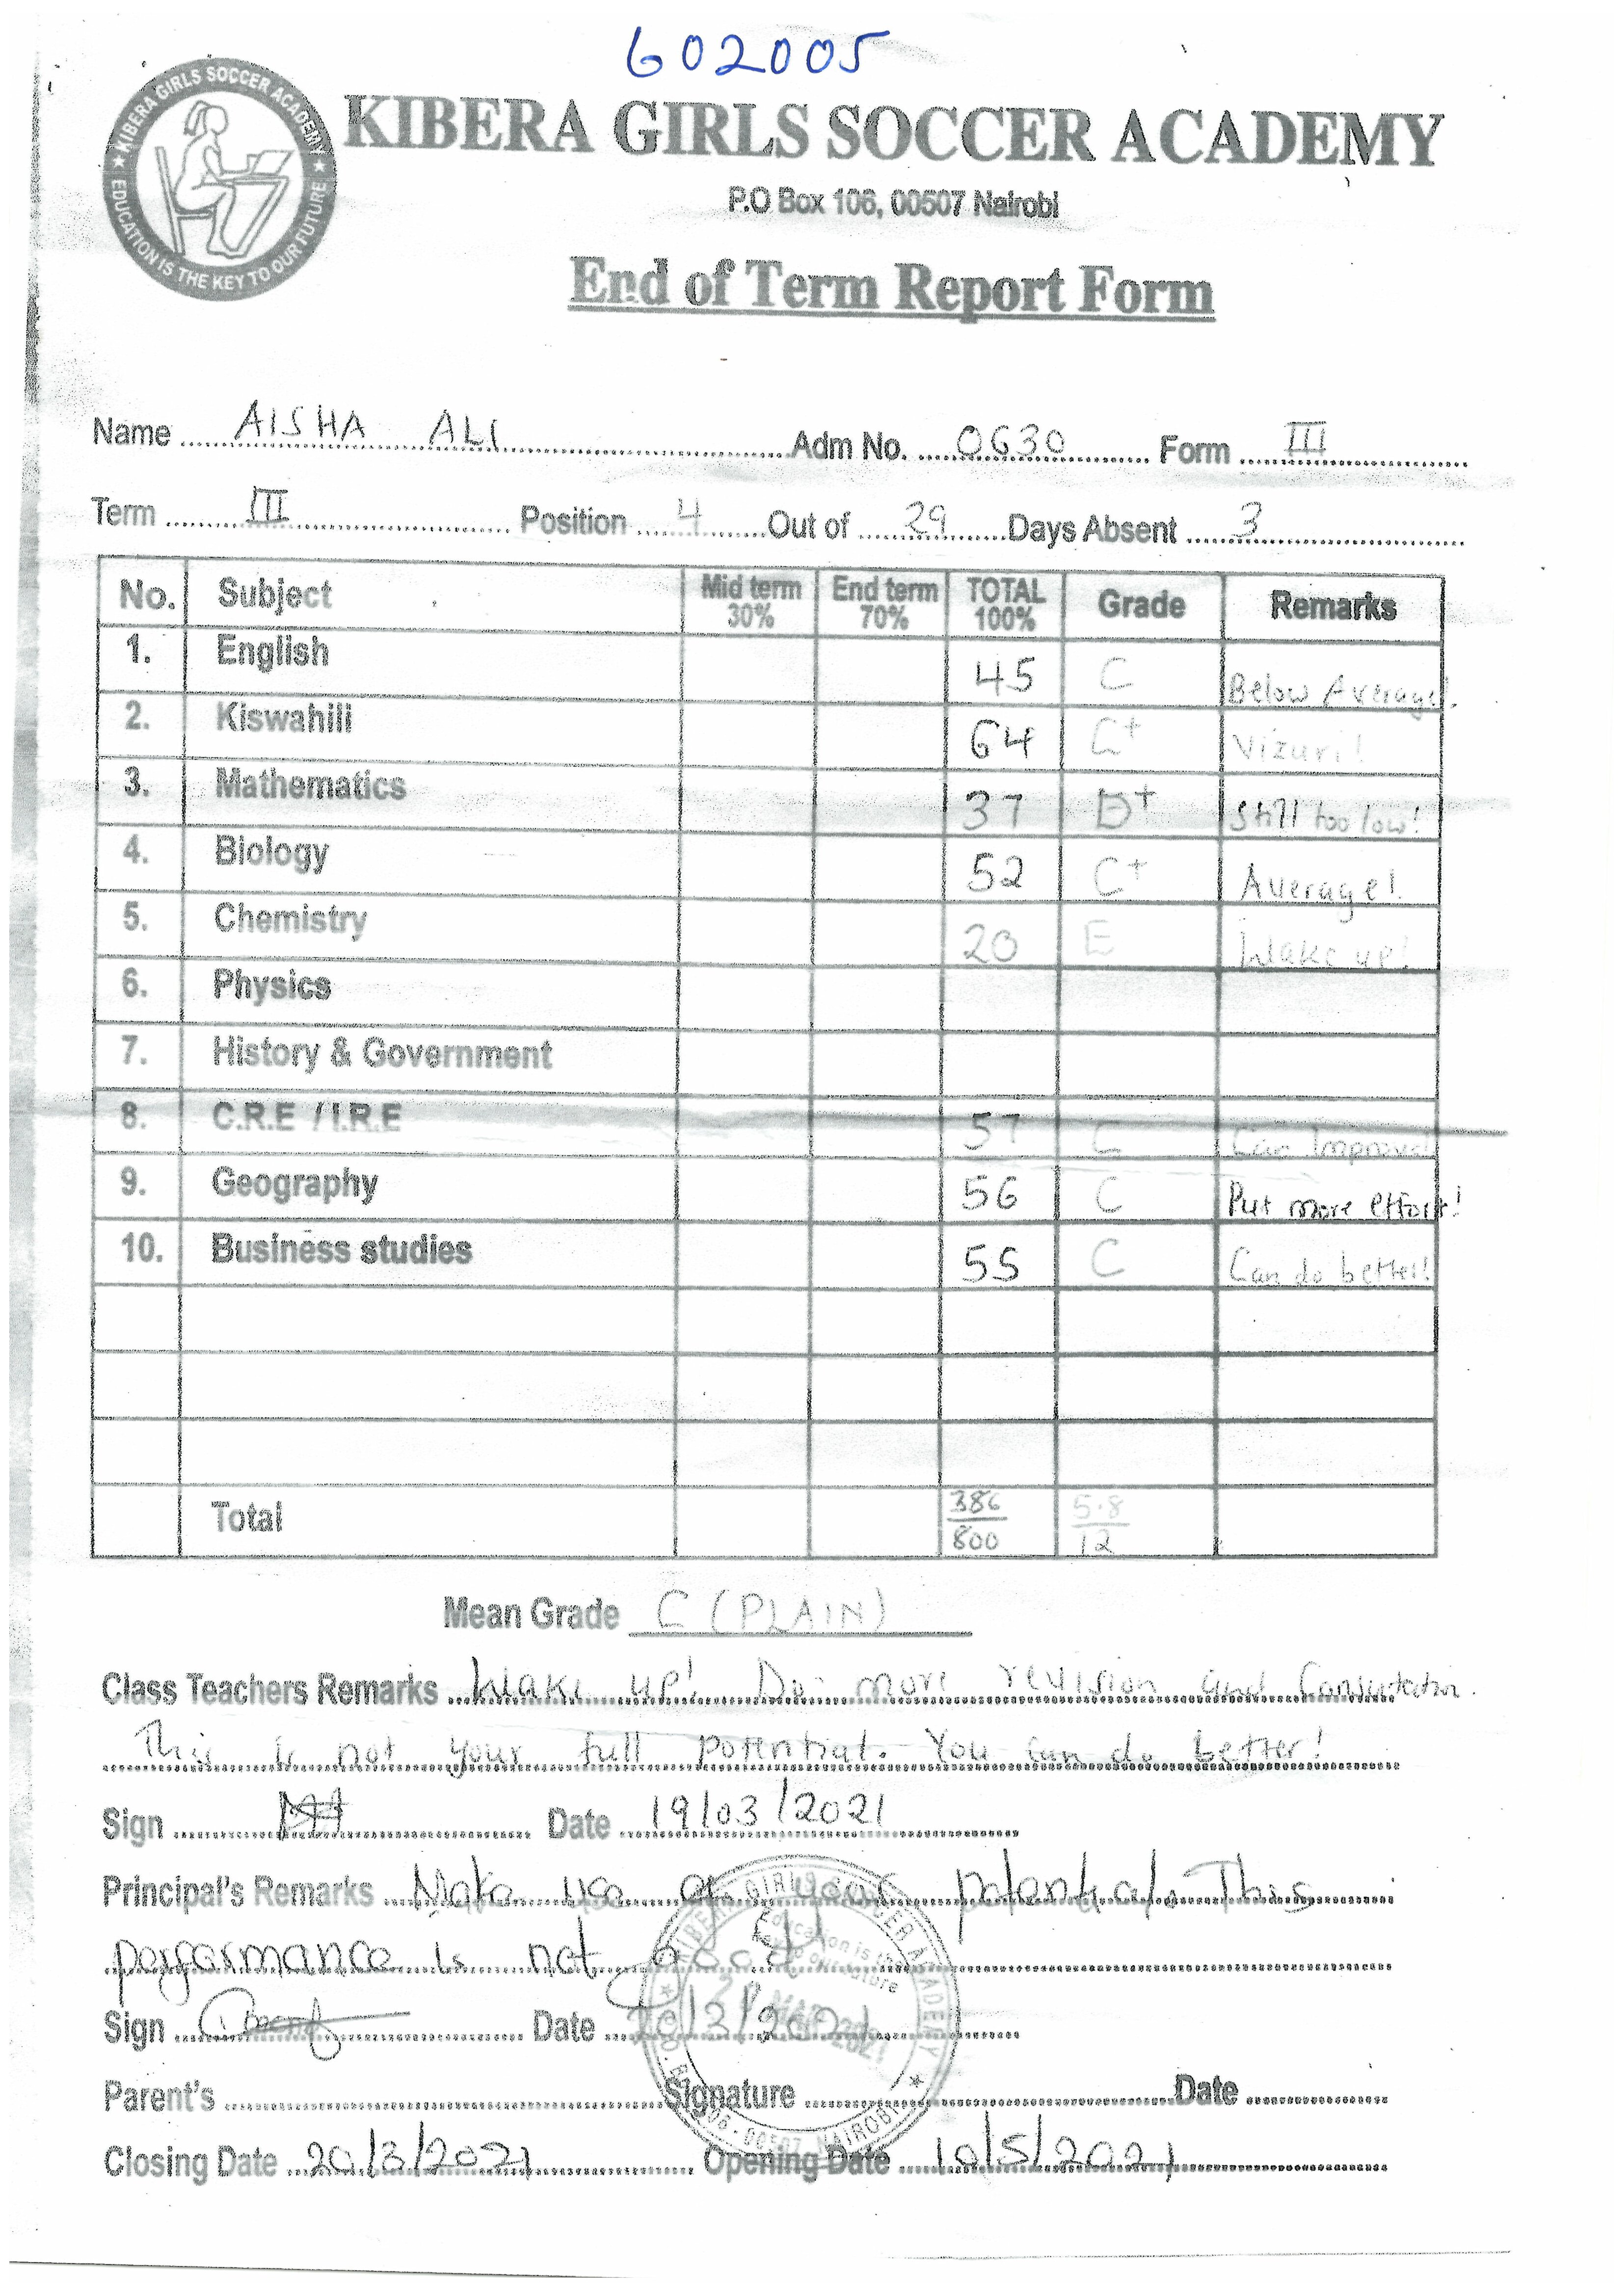 602005
KIBERA GIRLS SOCCER ACADEMY
EDUCATION IS THE KEY TO OUR FUTURE
KIBERA GIRLS SOCCER ACADEMY
P.O Box 106, 00507 Nairobi
End of Term Report Form
Name AISHA ALI Adm No. 0630 Form III
Term III Position 4 Out of 29 Days Absent 3
No. Subject Mid term 30% End term 70% TOTAL 100% Grade Remarks
1. English 45 C Below Average!
2. Kiswahili 64 C+ Vizuri!
3. Mathematics 37 D+ Still too low!
4. Biology 52 C+ Average!
5. Chemistry 20 E Wake up!
6. Physics
7. History & Government
8. C.R.E / I.R.E 57 C Can Improve!
9. Geography 56 C Put more effort!
10. Business studies 55 C Can do better!
Total 386/800 5.8/12
Mean Grade C (PLAIN)
Class Teachers Remarks Wake up! Do more revision and Consultation.
This is not your full potential. You can do better!
Sign Date 19/03/2021
Principal's Remarks Make use of your potential. This
performance is not good
Sign Date 20/3/2021
Parent's Signature Date
Closing Date 20/3/2021 Opening Date 10/5/2021